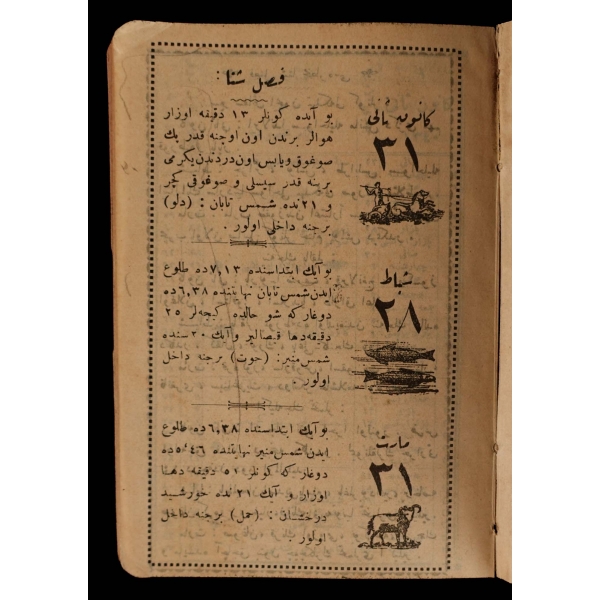 فصل شتا :
كانون ثانی
٣١
بو آیده كونلر ١٣ دقیقه اوزار
هوالر برندن اون اوچنه قدر پك
صوغوق ویابس اون دردندن یكرمی
برینه قدر سیسلی و صوغوقی كچر
و ٢١نده شمس تابان : (دلو)
برجنه داخل اولور .
شباط
٢٨
بو آیك ابتداسنده ٧,١٣ده طلوع
ایدن شمس تابان نهایتنده ٦,٣٨ده
دوغارکه شو حالده كیجه‌لر ٣٥
دقیقه دها قیصالیر و آیك ٢٠سنده
شمس منیر: (حوت) برجنه داخل
اولور .
مارت
٣١
بو آیك ابتداسنده ٦,٣٨ده طلوع
ایدن شمس منیر نهایتنده ٥٤٦ده
دوغارکه كونلر ٥١ دقیقه دها
اوزار و آیك ٢١نده خورشید
درخشان : (حمل) برجنه داخل
اولور .